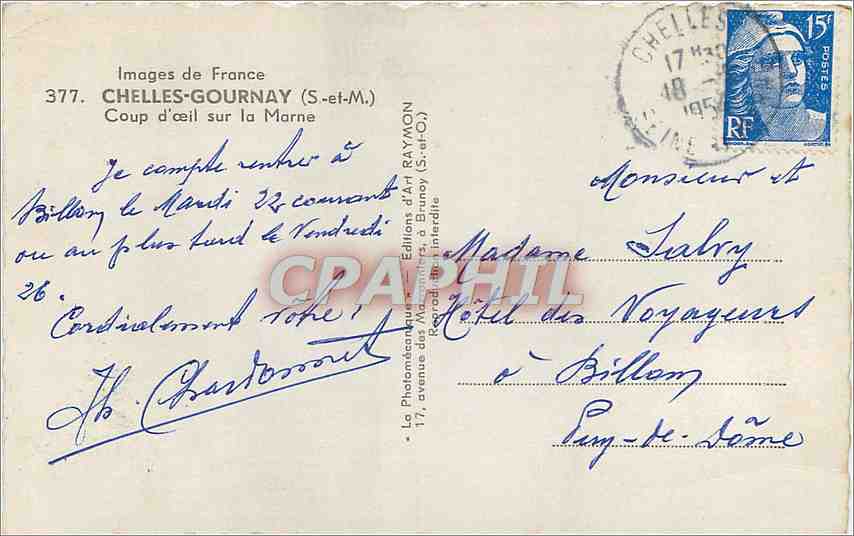 Images de France
377. CHELLES-GOURNAY (S.-et-M.)
Coup d'œil sur la Marne
Je compte rentrer à
Billom le Mardi 22 courant
ou au plus tard le Vendredi
26.
Cordialement vôtre!
Th. Chardonnet
« La Photomécanique » — Editions d'Art RAYMON
17, avenue des Marronniers, à Brunoy (S.-et-O.)
Reproduction interdite
CHELLES
17 H30
18
195
SEINE
15F
POSTES
RF
Monsieur et
Madame Salvy
Hôtel des Voyageurs
à Billom
Puy-de-Dôme
CPAPHIL